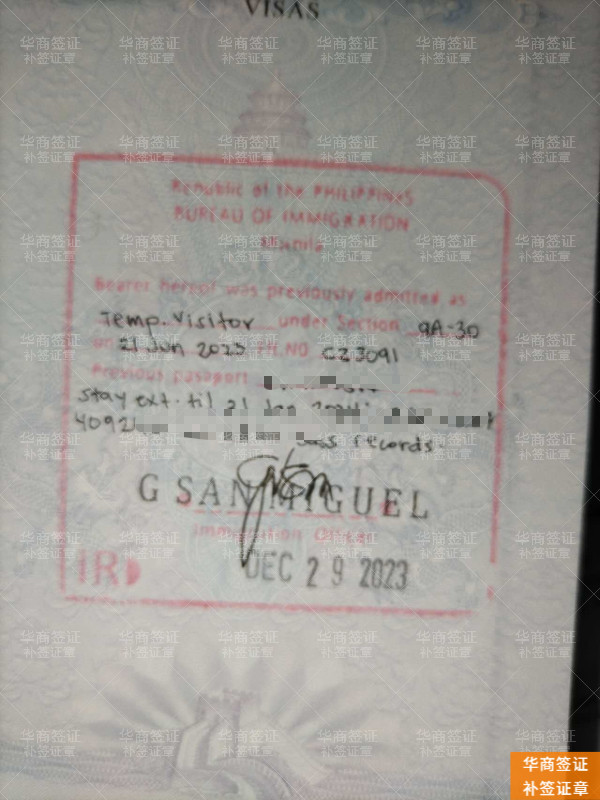 VISAS
Republic of the PHILIPPINES
BUREAU OF IMMIGRATION
Manila
Bearer hereof was previously admitted as
Temp. Visitor under Section 9A-30
on 21 Jun 2023 FL.NO CZ3091
Previous passport
Stay ext. til 21 Jan
4092
records.
G SAN MIGUEL
Immigration Officer
DEC 29 2023
IRD
华商签证
补签证章